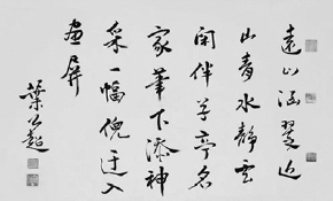 遠山涵翠近
山青水靜雲
閑伴草亭名
家筆下添神
采一幅倪迂入
畫屏
葉公超